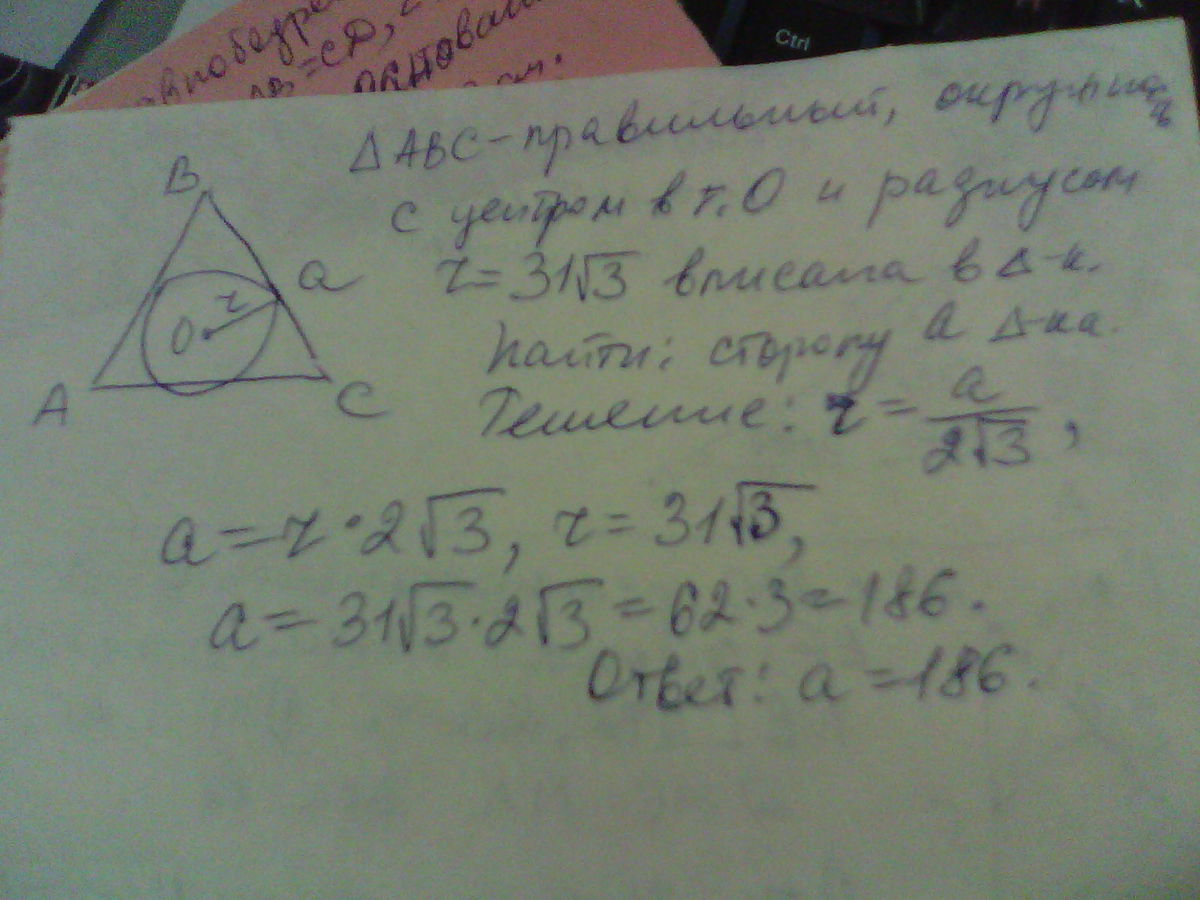 Ctrl
=СД,
основан
см.
Δ АВС - правильный, окружность
с центром в т. О и радиусом
r = 31√3 вписана в Δ-к.
Найти: сторону a Δ-ка.
Решение: r = a/2√3,
B
a
r
O
A
C
a = r · 2√3, r = 31√3,
a = 31√3 · 2√3 = 62 · 3 = 186.
Ответ: a = 186.